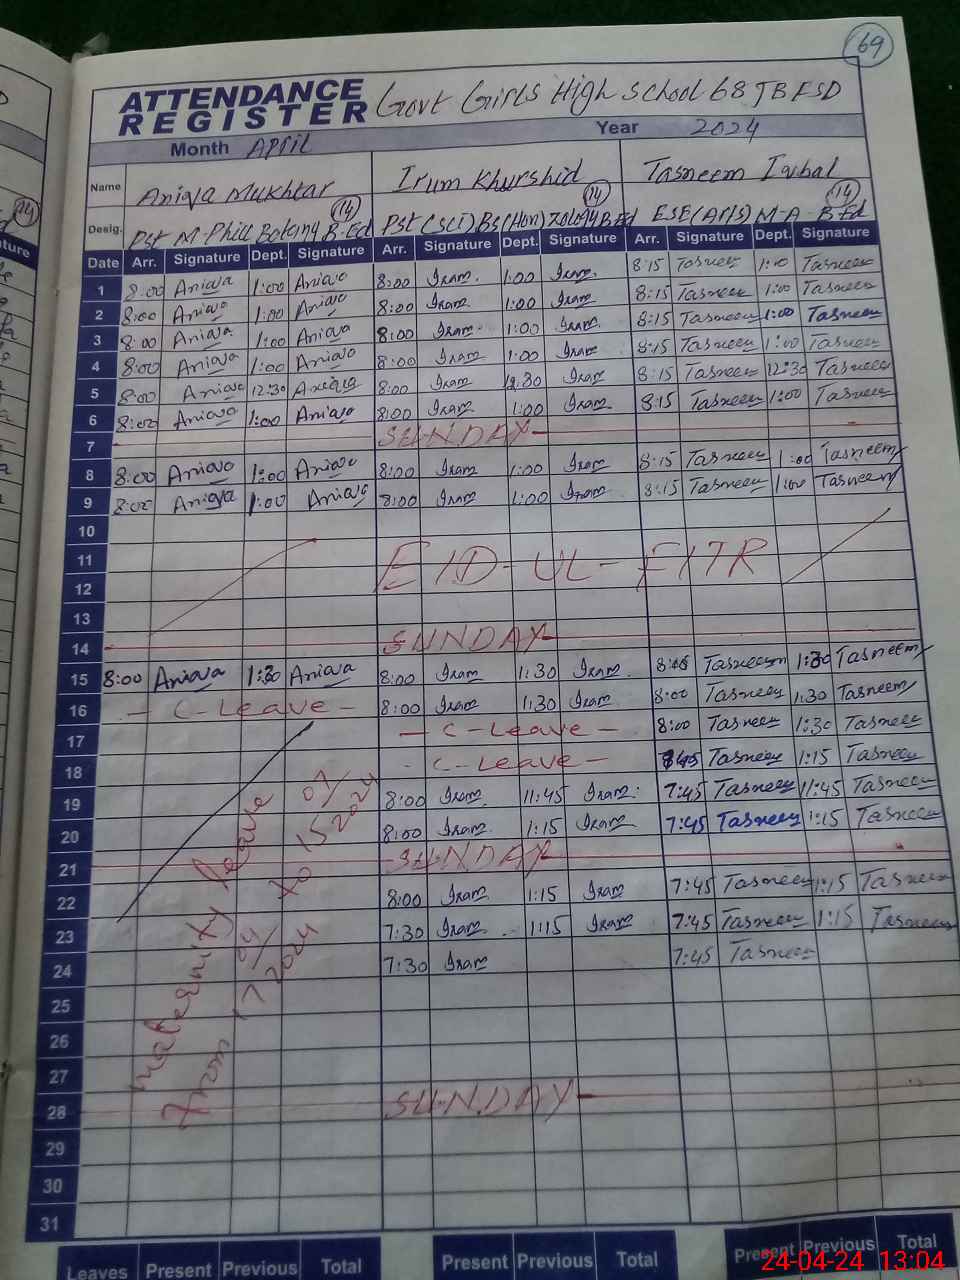 69
ATTENDANCE REGISTER Govt Girls High School 68 JB FSD
Month APRIL Year 2024
Name Aniqa Mukhtar Irum Khurshid Tasneem Iqbal
14 14 14
Desig. Pst M-Phill Botany B-Ed Pst (Sci) Bs(Hon) Zology B.Ed ESE(Arts) M-A B-Ed
Date Arr. Signature Dept. Signature Arr. Signature Dept. Signature Arr. Signature Dept. Signature
1 8:00 Aniqa 1:00 Aniqa 8:00 Iram 1:00 Iram 8:15 Tasneem 1:00 Tasneem
2 8:00 Aniqa 1:00 Aniqa 8:00 Iram 1:00 Iram 8:15 Tasneem 1:00 Tasneem
3 8:00 Aniqa 1:00 Aniqa 8:00 Iram 1:00 Iram 8:15 Tasneem 1:00 Tasneem
4 8:00 Aniqa 1:00 Aniqa 8:00 Iram 1:00 Iram 8:15 Tasneem 1:00 Tasneem
5 8:00 Aniqa 12:30 Aniqa 8:00 Iram 12:30 Iram 8:15 Tasneem 12:30 Tasneem
6 8:00 Aniqa 1:00 Aniqa 8:00 Iram 1:00 Iram 8:15 Tasneem 1:00 Tasneem
7 SUNDAY
8 8:00 Aniqa 1:00 Aniqa 8:00 Iram 1:00 Iram 8:15 Tasneem 1:00 Tasneem
9 8:00 Aniqa 1:00 Aniqa 8:00 Iram 1:00 Iram 8:15 Tasneem 1:00 Tasneem
10
11 EID-UL-FITR
12
13
14 SUNDAY
15 8:00 Aniqa 1:30 Aniqa 8:00 Iram 1:30 Iram 8:00 Tasneem 1:30 Tasneem
16 - C-Leave - 8:00 Iram 1:30 Iram 8:00 Tasneem 1:30 Tasneem
17 - C-Leave - 8:00 Tasneem 1:30 Tasneem
18 C-Leave - 7:45 Tasneem 1:15 Tasneem
19 8:00 Iram 11:45 Iram 7:45 Tasneem 11:45 Tasneem
20 8:00 Iram 1:15 Iram 7:45 Tasneem 1:15 Tasneem
21 SUNDAY
22 8:00 Iram 1:15 Iram 7:45 Tasneem 1:15 Tasneem
23 7:30 Iram 1:15 Iram 7:45 Tasneem 1:15 Tasneem
24 7:30 Iram 7:45 Tasneem
25
26
27
28 SUNDAY
29
30
31
maternity leave
from 17/04/2024 to 15/07/2024
Leaves Present Previous Total Present Previous Total Present Previous Total
24-04-24 13:04